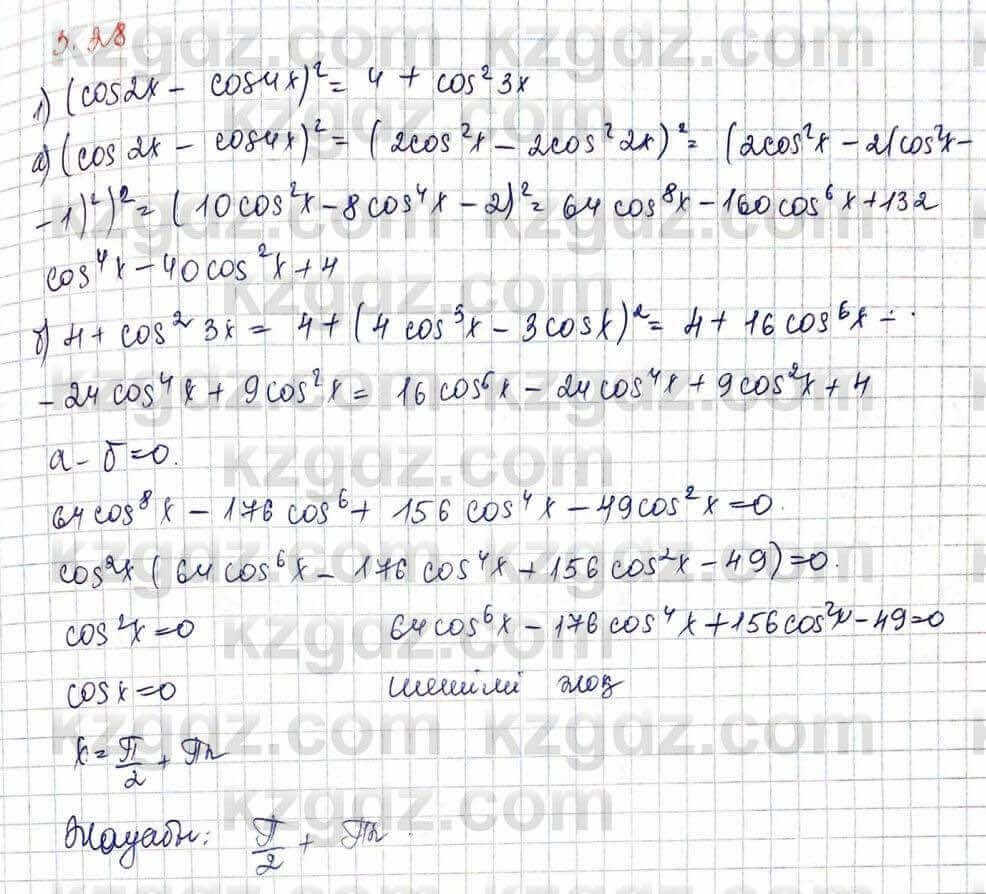 3.28
1) (cos2x - cos4x)² = 4 + cos²3x
а) (cos 2x - cos4x)² = (2cos²x - 2cos²2x)² = (2cos²x - 2(cos²x -
- 1)²)² = (10cos²x - 8cos⁴x - 2)² = 64cos⁸x - 160cos⁶x + 132
cos⁴x - 40cos²x + 4
б) 4 + cos²3x = 4 + (4cos³x - 3cosx)² = 4 + 16cos⁶x -
- 24cos⁴x + 9cos²x = 16cos⁶x - 24cos⁴x + 9cos²x + 4
а - б = 0.
64cos⁸x - 176cos⁶ + 156cos⁴x - 49cos²x = 0.
cos²x (64cos⁶x - 176cos⁴x + 156cos²x - 49) = 0.
cos²x = 0 64cos⁶x - 176cos⁴x + 156cos²x - 49 = 0
cosx = 0 шешімі жоқ
x = π/2 + πn
Жауабы: π/2 + πn
kzgdz.com